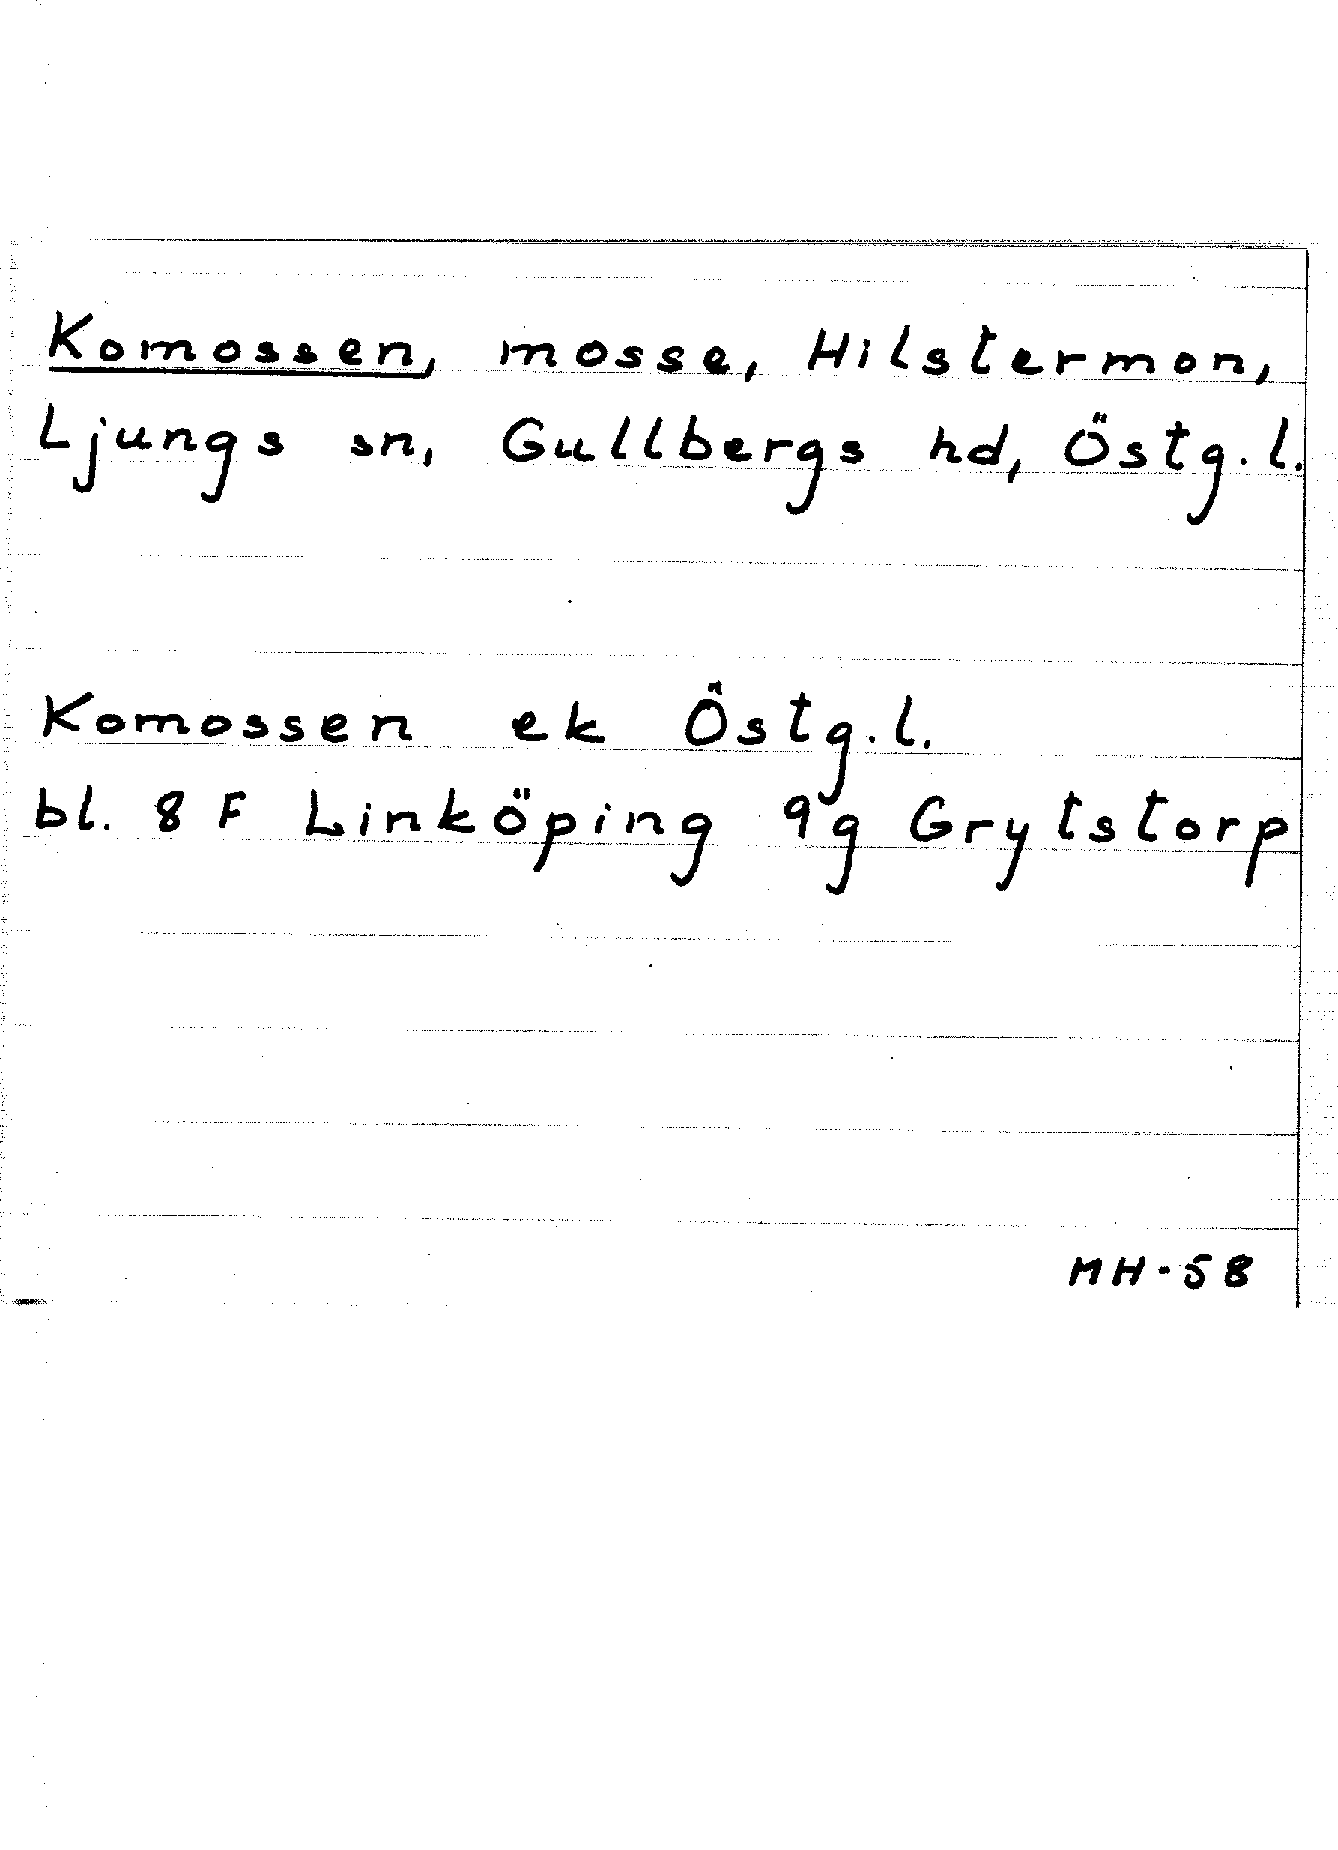 Komossen, mosse, Hilstermon,
Ljungs sn, Gullbergs hd, Östg.l.
Komossen ek Östg.l.
bl. 8 F Linköping 9g Grytstorp
MH-58